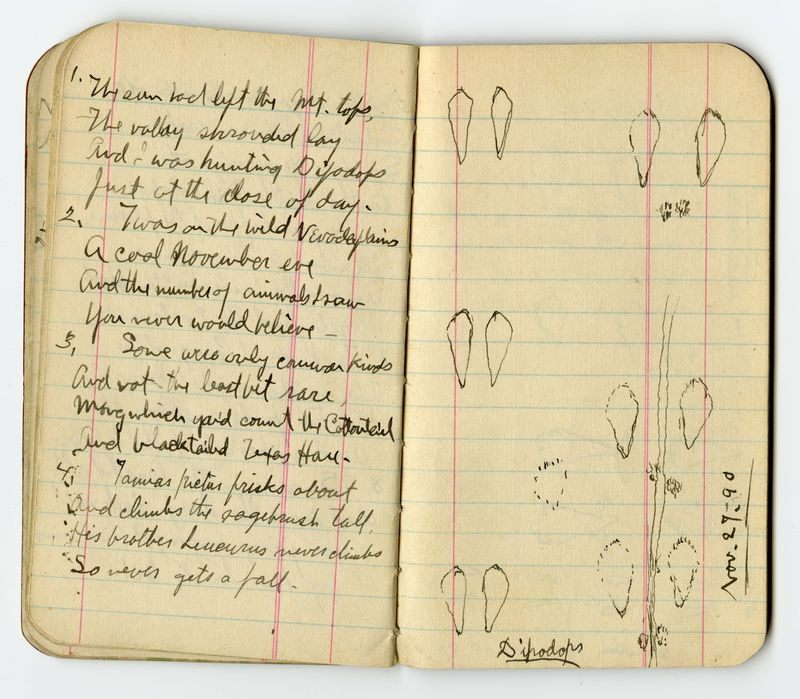 1. The sun had left the Mt. tops,
The valley shrouded lay
And I was hunting Dipodops
Just at the close of day.
2. Twas on the wild Nevada plains
A cool November eve
And the number of animals I saw
You never would believe —
3. Some were only common kinds
And not the least bit rare,
Among which you'd count the Cottontail
And blacktailed Texas Hare.
4. Tamias pictus frisks about
And climbs the sagebrush tall.
His brother Leucurus never climbs
So never gets a fall.
Dipodops
Nov. 27-90